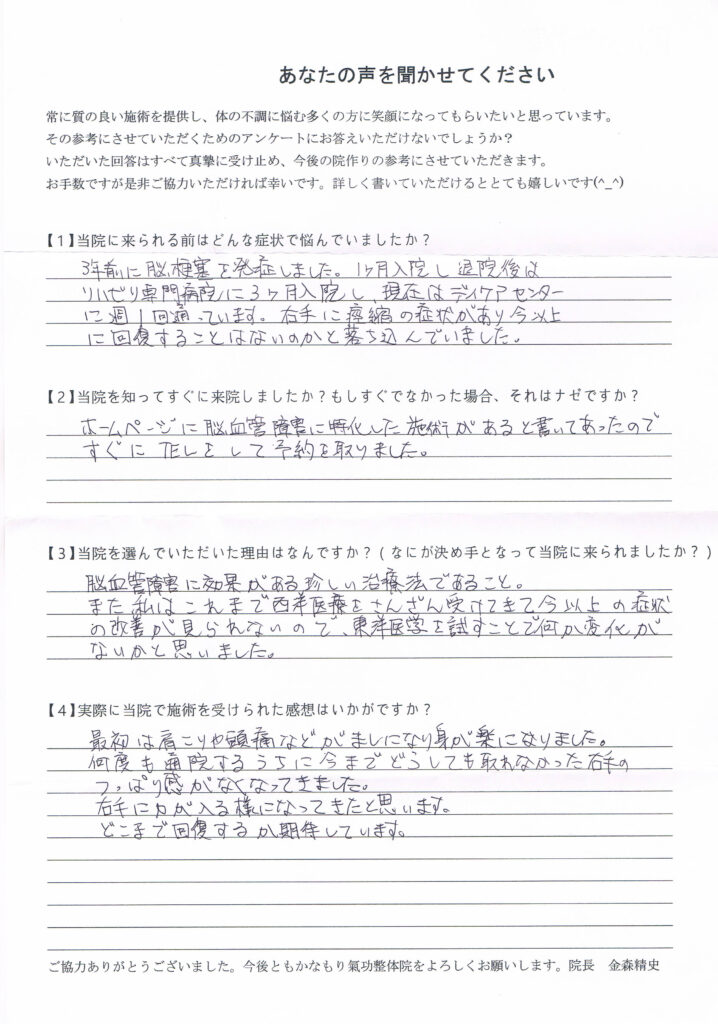 あなたの声を聞かせてください
常に質の良い施術を提供し、体の不調に悩む多くの方に笑顔になってもらいたいと思っています。
その参考にさせていただくためのアンケートにお答えいただけないでしょうか？
いただいた回答はすべて真摯に受け止め、今後の院作りの参考にさせていただきます。
お手数ですが是非ご協力いただければ幸いです。詳しく書いていただけるととても嬉しいです(^_^)
【1】当院に来られる前はどんな症状で悩んでいましたか？
3年前に脳梗塞を発症しました。1ヶ月入院し退院後は
リハビリ専門病院に3ヶ月入院し、現在はデイケアセンター
に週1回通っています。右手に痙縮の症状があり今以上
に回復することはないのかと落ち込んでいました。
【2】当院を知ってすぐに来院しましたか？もしすぐでなかった場合、それはナゼですか？
ホームページに脳血管障害に特化した施術があると書いてあったので
すぐにTELをして予約を取りました。
【3】当院を選んでいただいた理由はなんですか？(なにが決め手となって当院に来られましたか？)
脳血管障害に効果がある珍しい治療法であること。
また私はこれまで西洋医療をさんざん受けてきて今以上の症状
の改善が見られないので、東洋医学を試すことで何か変化が
ないかと思いました。
【4】実際に当院で施術を受けられた感想はいかがですか？
最初は肩こりや頭痛などがましになり身が楽になりました。
何度も通院するうちに今までどうしても取れなかった右手の
つっぱり感がなくなってきました。
右手に力が入る様になってきたと思います。
どこまで回復するか期待しています。
ご協力ありがとうございました。今後ともかなもり氣功整体院をよろしくお願いします。院長　金森精史